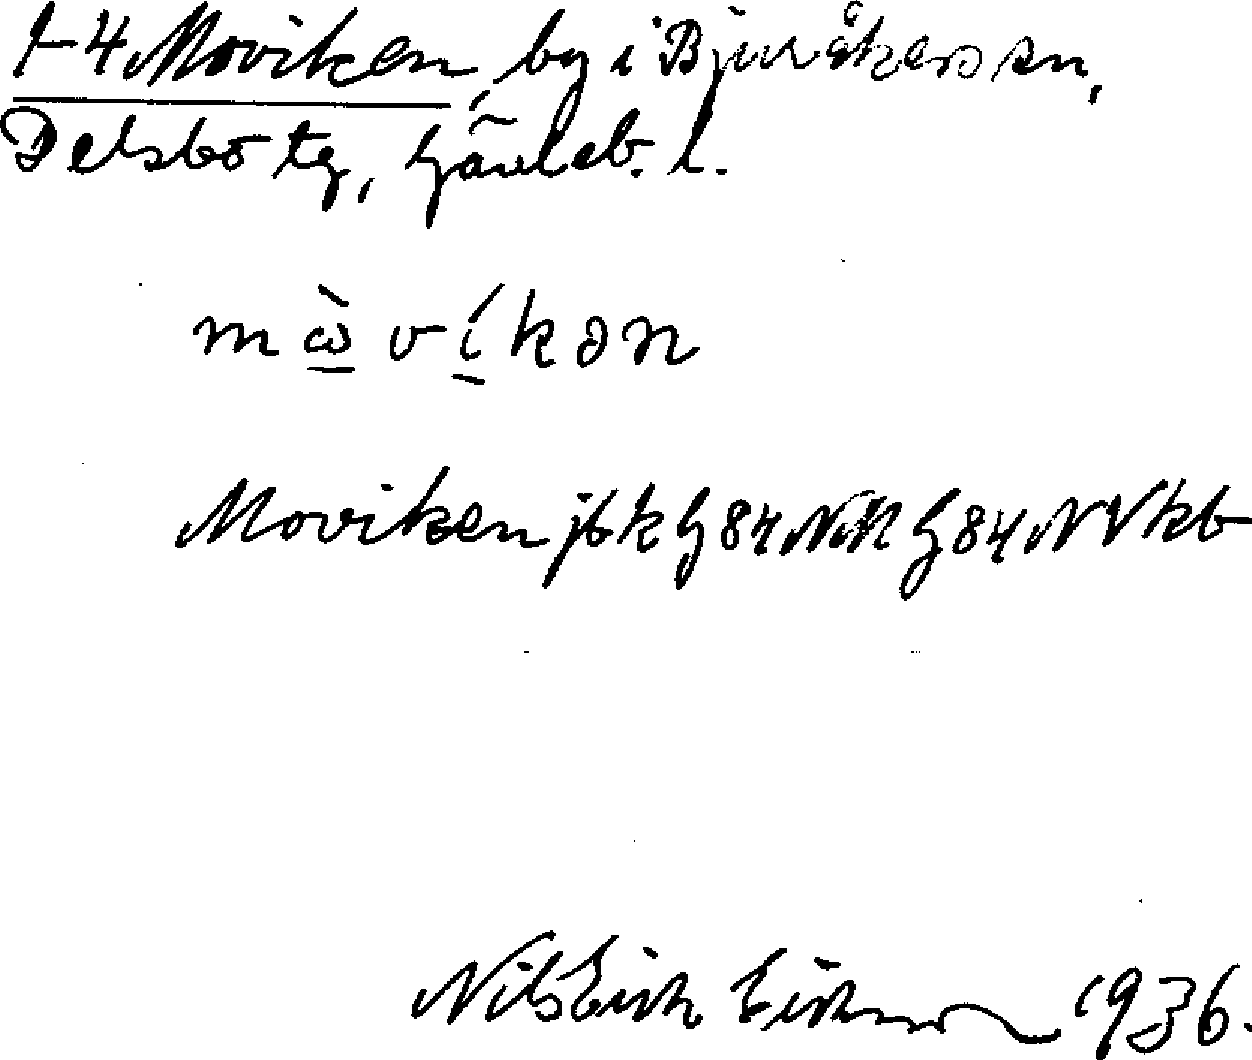 1-4 Moviken, by i Bjuråkers sn,
Delsbo tg, Gävleb. l.
mὼvíkən
Moviken jbk G 84 NM G 84 NV kb
Nils Erik 1936.